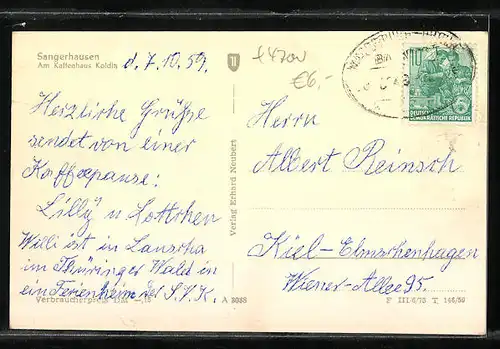 Sangerhausen
Am Kaffeehaus Kolditz
d. 7.10.59.
Herzliche Grüße
sendet von einer
Kaffeepause:
Lilly u Lottchen
Willi ist in Lauscha
im Thüringer Wald in
ein Ferienheim der S.V.K.
Verbraucherpreis DM
A 3088
Verlag Erhard Neubert
£4701
€6,-
10
DEUTSCHE
DEMOKRATISCHE REPUBLIK
Albert Reinsch
Kiel-Elmschenhagen
Wiener-Allee 95.
P III/6/75 T 146/59